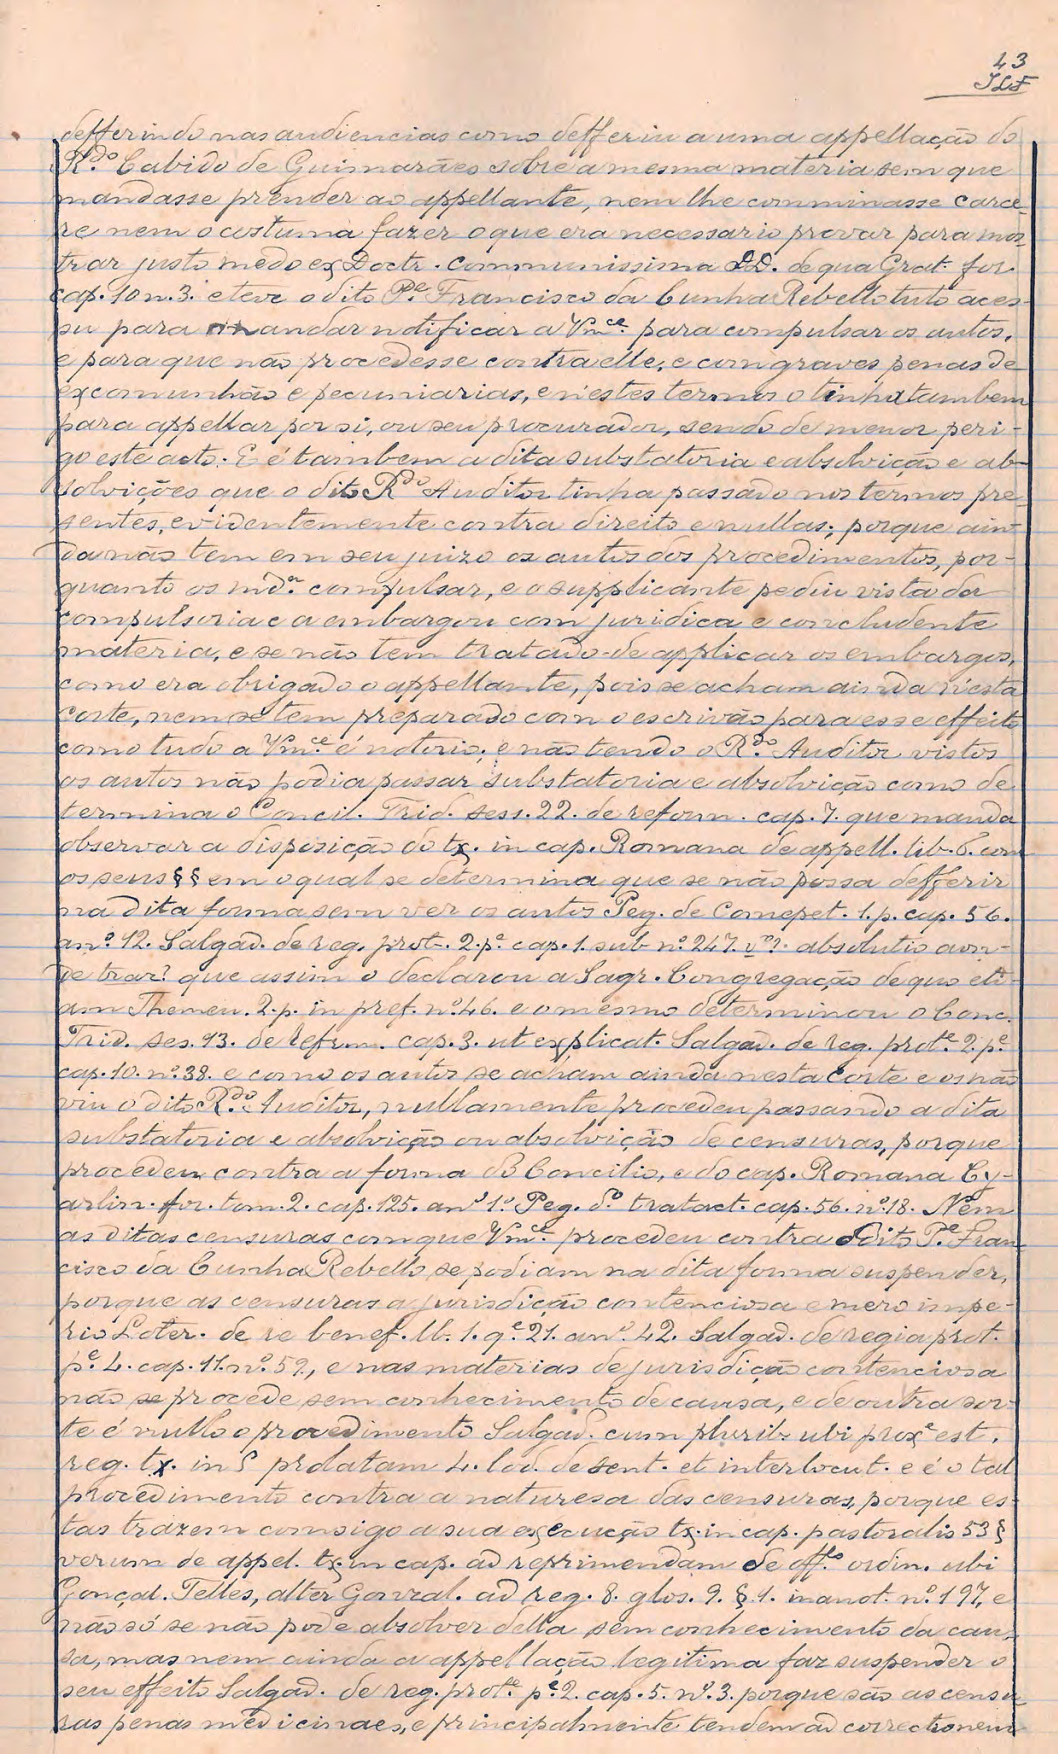 43
defferindo nas audiencias como defferiu a uma appellação do
R.do Cabido de Guimarães sobre a mesma materia sem que
mandasse prender ao appellante, nem lhe comminasse carce-
re nem o costuma fazer o que era necessario provar para mos-
trar justo medo ex Doctr. communissima DD. de qua Grat. for.
cap. 10 n. 3. e teve o dito P.e Francisco da Cunha Rebello tuto aces-
su para mandar notificar a Vm.ce para compulsar os autos,
e para que não procedesse contra elle, e com graves penas de
excomunhão e pecuniarias, e n'estes termos o tinha tambem
para appellar por si, ou seu procurador, sendo de menor peri-
go este acto. E é tambem a dita substatoria e absolvição e ab-
solvições que o dito R.do Auditor tinha passado nos termos pre-
sentes, evidentemente contra direito e nullas; porque ain-
da não tem em seu juizo os autos dos procedimentos, por-
quanto os md.ou compulsar, e o supplicante pediu vista da
compulsoria e a embargou com juridica e concludente
materia, e se não tem tratado de applicar os embargos,
como era obrigado o appellante, pois se acham ainda n'esta
corte, nem se tem preparado com o escrivão para esse effeito
como tudo a Vm.ce é notorio; e não tendo o R.do Auditor vistos
os autos não podia passar substatoria e absolvição como de-
termina o Concil. Trid. sess. 22. de reform. cap. 7. que manda
observar a disposição do tx. in cap. Romana de appell. lib. 6. com
os seus §§ em o qual se determina que se não possa defferir
na dita forma sem ver os autos Peg. de Comepet. 1. p. cap. 56.
an.o 12. Salgad. de reg. prot. 2. p.e cap. 1. sub n.o 247. absolutio
que assim o declarou a Sagr. Congregação de quo eti-
am Themeu. 2. p. in pref. n.o 46. e o mesmo determinou o Conc.
Trid. ses. 13. de refrm. cap. 3. ut explicat. Salgad. de reg. prot.e 2. p.e
cap. 10. n.o 38. e como os autos se acham ainda nesta Corte e os não
viu o dito R.do Auditor, nullamente procedeu passando a dita
substatoria e absolvição ou absolvição de censuras, porque
procedeu contra a forma do Concilio, e do cap. Romana Cy-
arlin. for. tom. 2. cap. 125. an.o 1.o Peg. d.o tratact. cap. 56. n.o 18. Nem
as ditas censuras com que Vm.ce procedeu contra o dito P.e Fran-
cisco da Cunha Rebello se podiam na dita forma suspender,
porque as censuras a jurisdição contenciosa e mero impe-
rio Loter. de re benef. lb. 1. q.e 21. an.o 42. Salgad. de regia prot.
p.e 4. cap. 11. n.o 52., e nas materias de jurisdição contenciosa
não se procede sem conhecimento de causa, e de outra sor-
te é nullo o procedimento Salgad. cum plurib. ubi prox.e est.
reg. tx. in § prolatam 4. Cod. de sent. et interlocut. e é o tal
procedimento contra a naturesa das censuras, porque es-
tas trazem comsigo a sua execução tx. in cap. pastoralis 53 §
verum de appel. tx. in cap. ad reprimendam de off.o ordin. ubi
Gonçal. Telles, alter Gonzal. ad reg. 8. glos. 9. § 1. in anot. n.o 197, e
não só se não pode absolver della sem conhecimento da cau-
sa, mas nem ainda a appellação legitima faz suspender o
seu effeito Salgad. de reg. prot.e p.e 2. cap. 5. n.o 3. porque são as censu-
ras penas medicinaes, e principalmente tendem ad correctionem